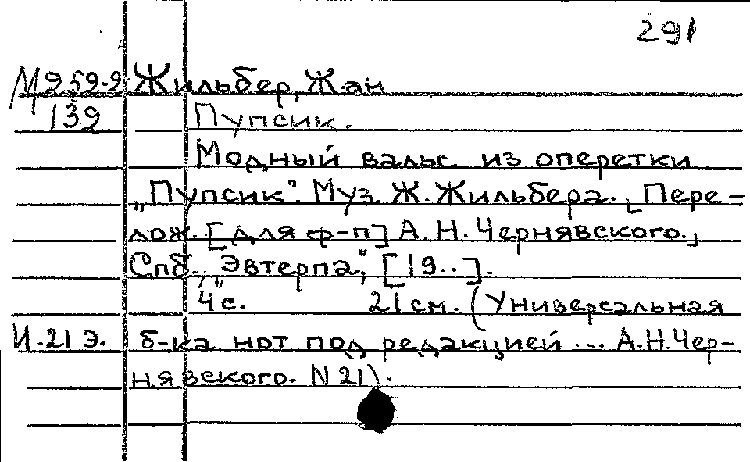 291
М 959-9 Жильбер, Жан
139 Пупсик.
Модный вальс из оперетки
„Пупсик". Муз. Ж. Жильбера. [Пере-
лож. [для ф-п] А. Н. Чернявского.]
Спб., „Эвтерпа", [19..].
4 с. 21 см. (Универсальная
И.21 Э. б-ка нот под редакцией ... А.Н.Чер-
нявского. N 21).